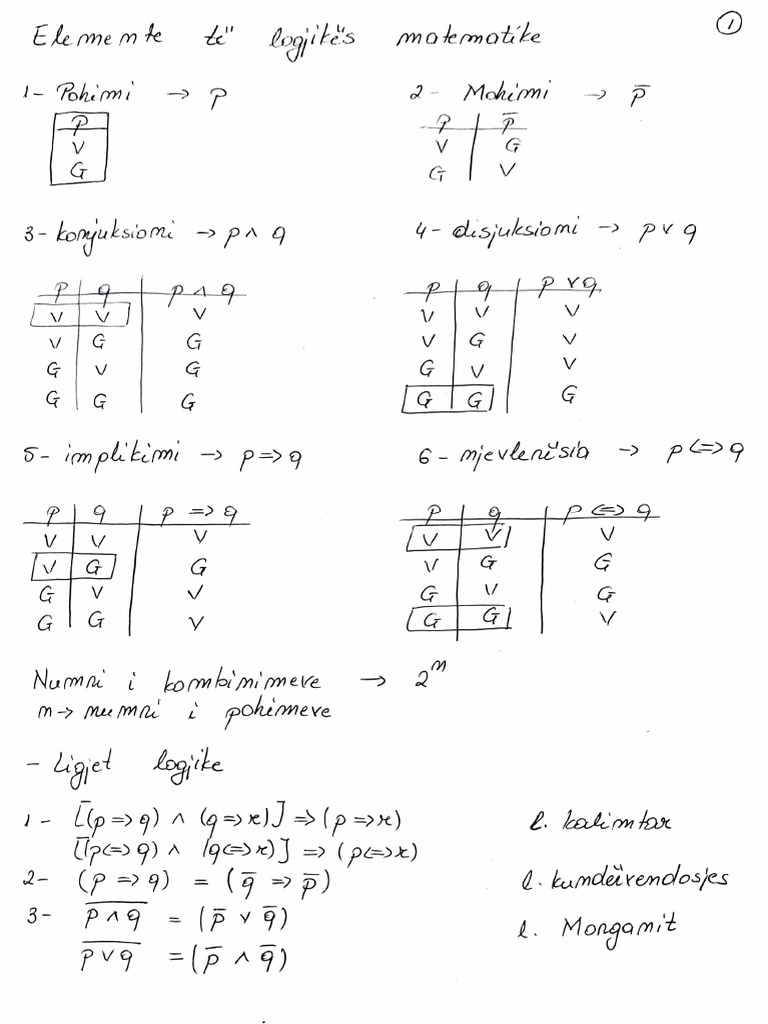 ①
Elemente të logjikës matematike
1- Pohimi → p
p
V
G
2- Mohimi → p̅
p | p̅
V | G
G | V
3- konjuksioni → p ∧ q
p | q | p ∧ q
V | V | V
V | G | G
G | V | G
G | G | G
4- disjuksioni → p ∨ q
p | q | p ∨ q
V | V | V
V | G | V
G | V | V
G | G | G
5- implikimi → p => q
p | q | p => q
V | V | V
V | G | G
G | V | V
G | G | V
6- njevlerësia → p <=> q
p | q | p <=> q
V | V | V
V | G | G
G | V | G
G | G | V
Numri i kombinimeve → 2ⁿ
n → numri i pohimeve
- Ligjet logjike
1- [(p => q) ∧ (q => r)] => (p => r) l. kalimtar
[(p <=> q) ∧ (q <=> r)] => (p <=> r)
2- (p => q) = (q̅ => p̅) l. kundërvendosjes
3- p̅ ̅∧̅ ̅q̅ = (p̅ ∨ q̅) l. Morganit
p̅ ̅∨̅ ̅q̅ = (p̅ ∧ q̅)